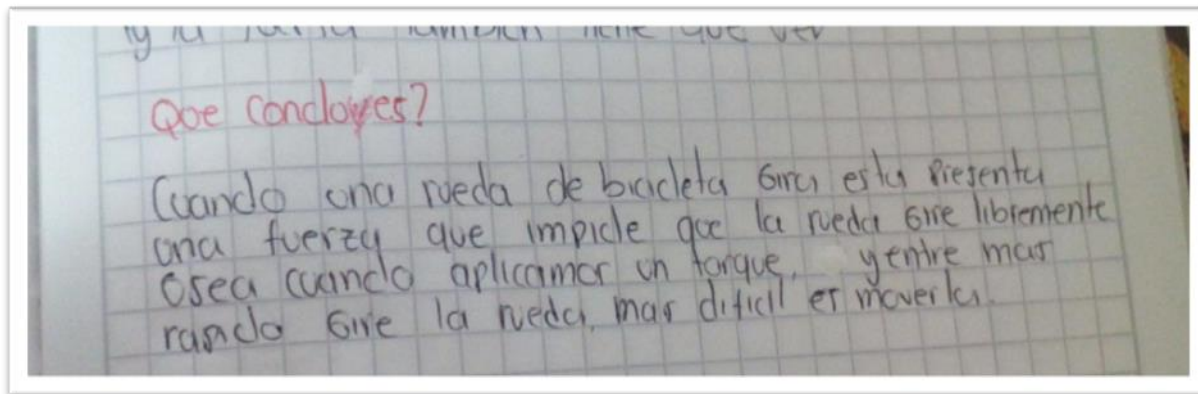 y la también tiene que ver
Que Concluyes?
Cuando una rueda de bicicleta Gira esta Presenta
una fuerza que impide que la rueda Gire libremente
Osea cuando aplicamos un torque, y entre mas
rapido Gire la rueda, mas dificil es moverla.